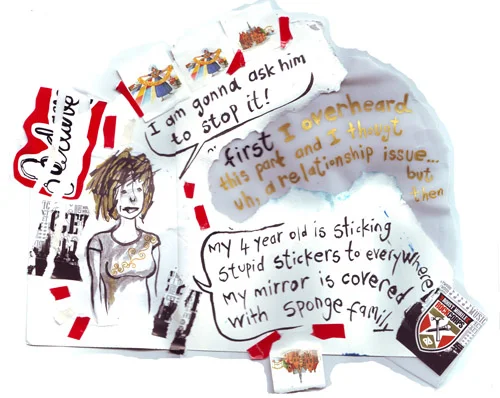 I am gonna ask him
to stop it!
first I overheard
this part and I thougt
uh, a relationship issue...
but
then
My 4 year old is sticking
stupid stickers to everywhere
My mirror is covered
with sponge family